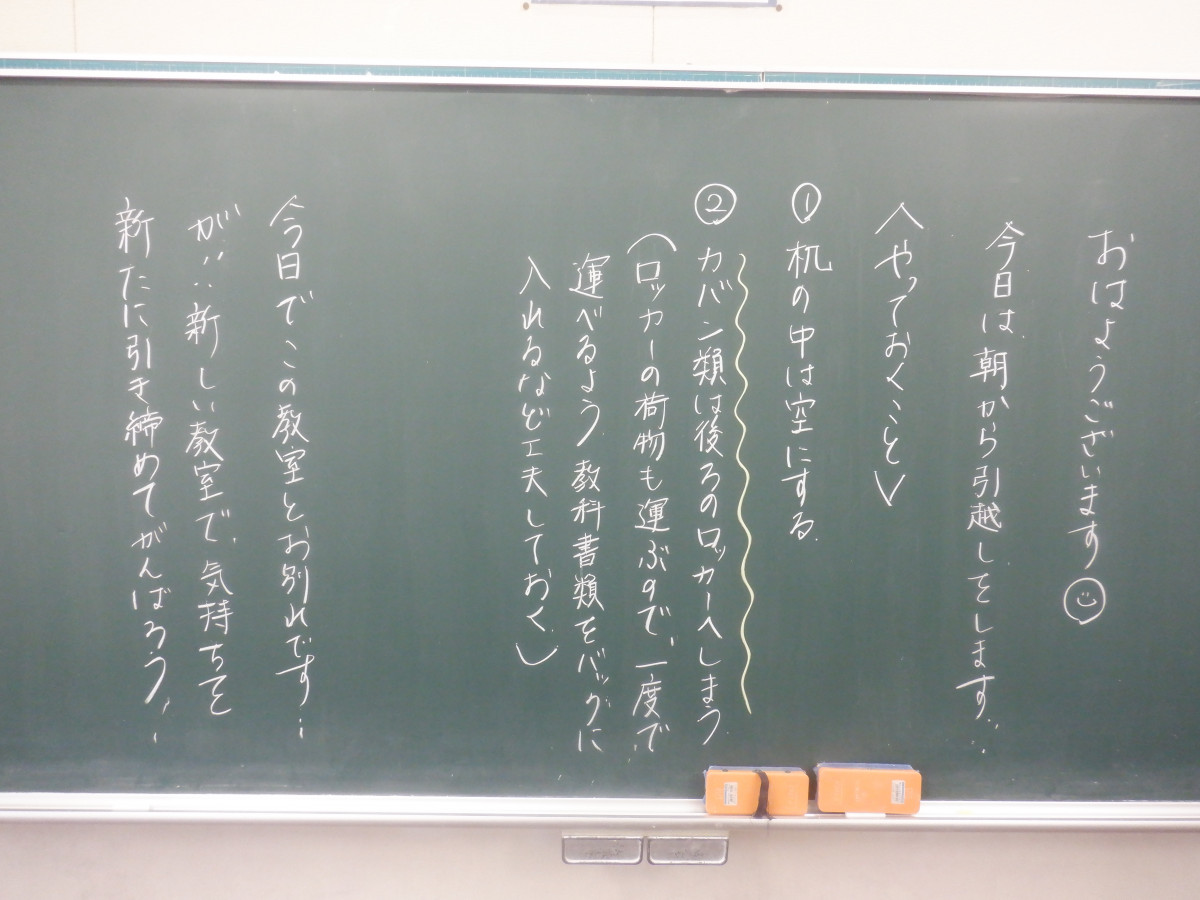 おはようございます
今日は、朝から引越しをします。
〈やっておくこと〉
① 机の中は空にする
② カバン類は後ろのロッカーへしまう
(ロッカーの荷物も運ぶので、一度で
運べるよう、教科書類をバッグに
入れるなど工夫しておく)
今日でこの教室とお別れです…
が…新しい教室で、気持ちを
新たに引き締めてがんばろう!!